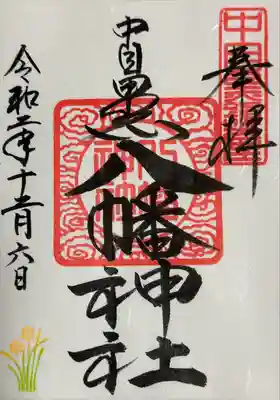 奉拝
中目黒八幡神社
令和二年十二月六日